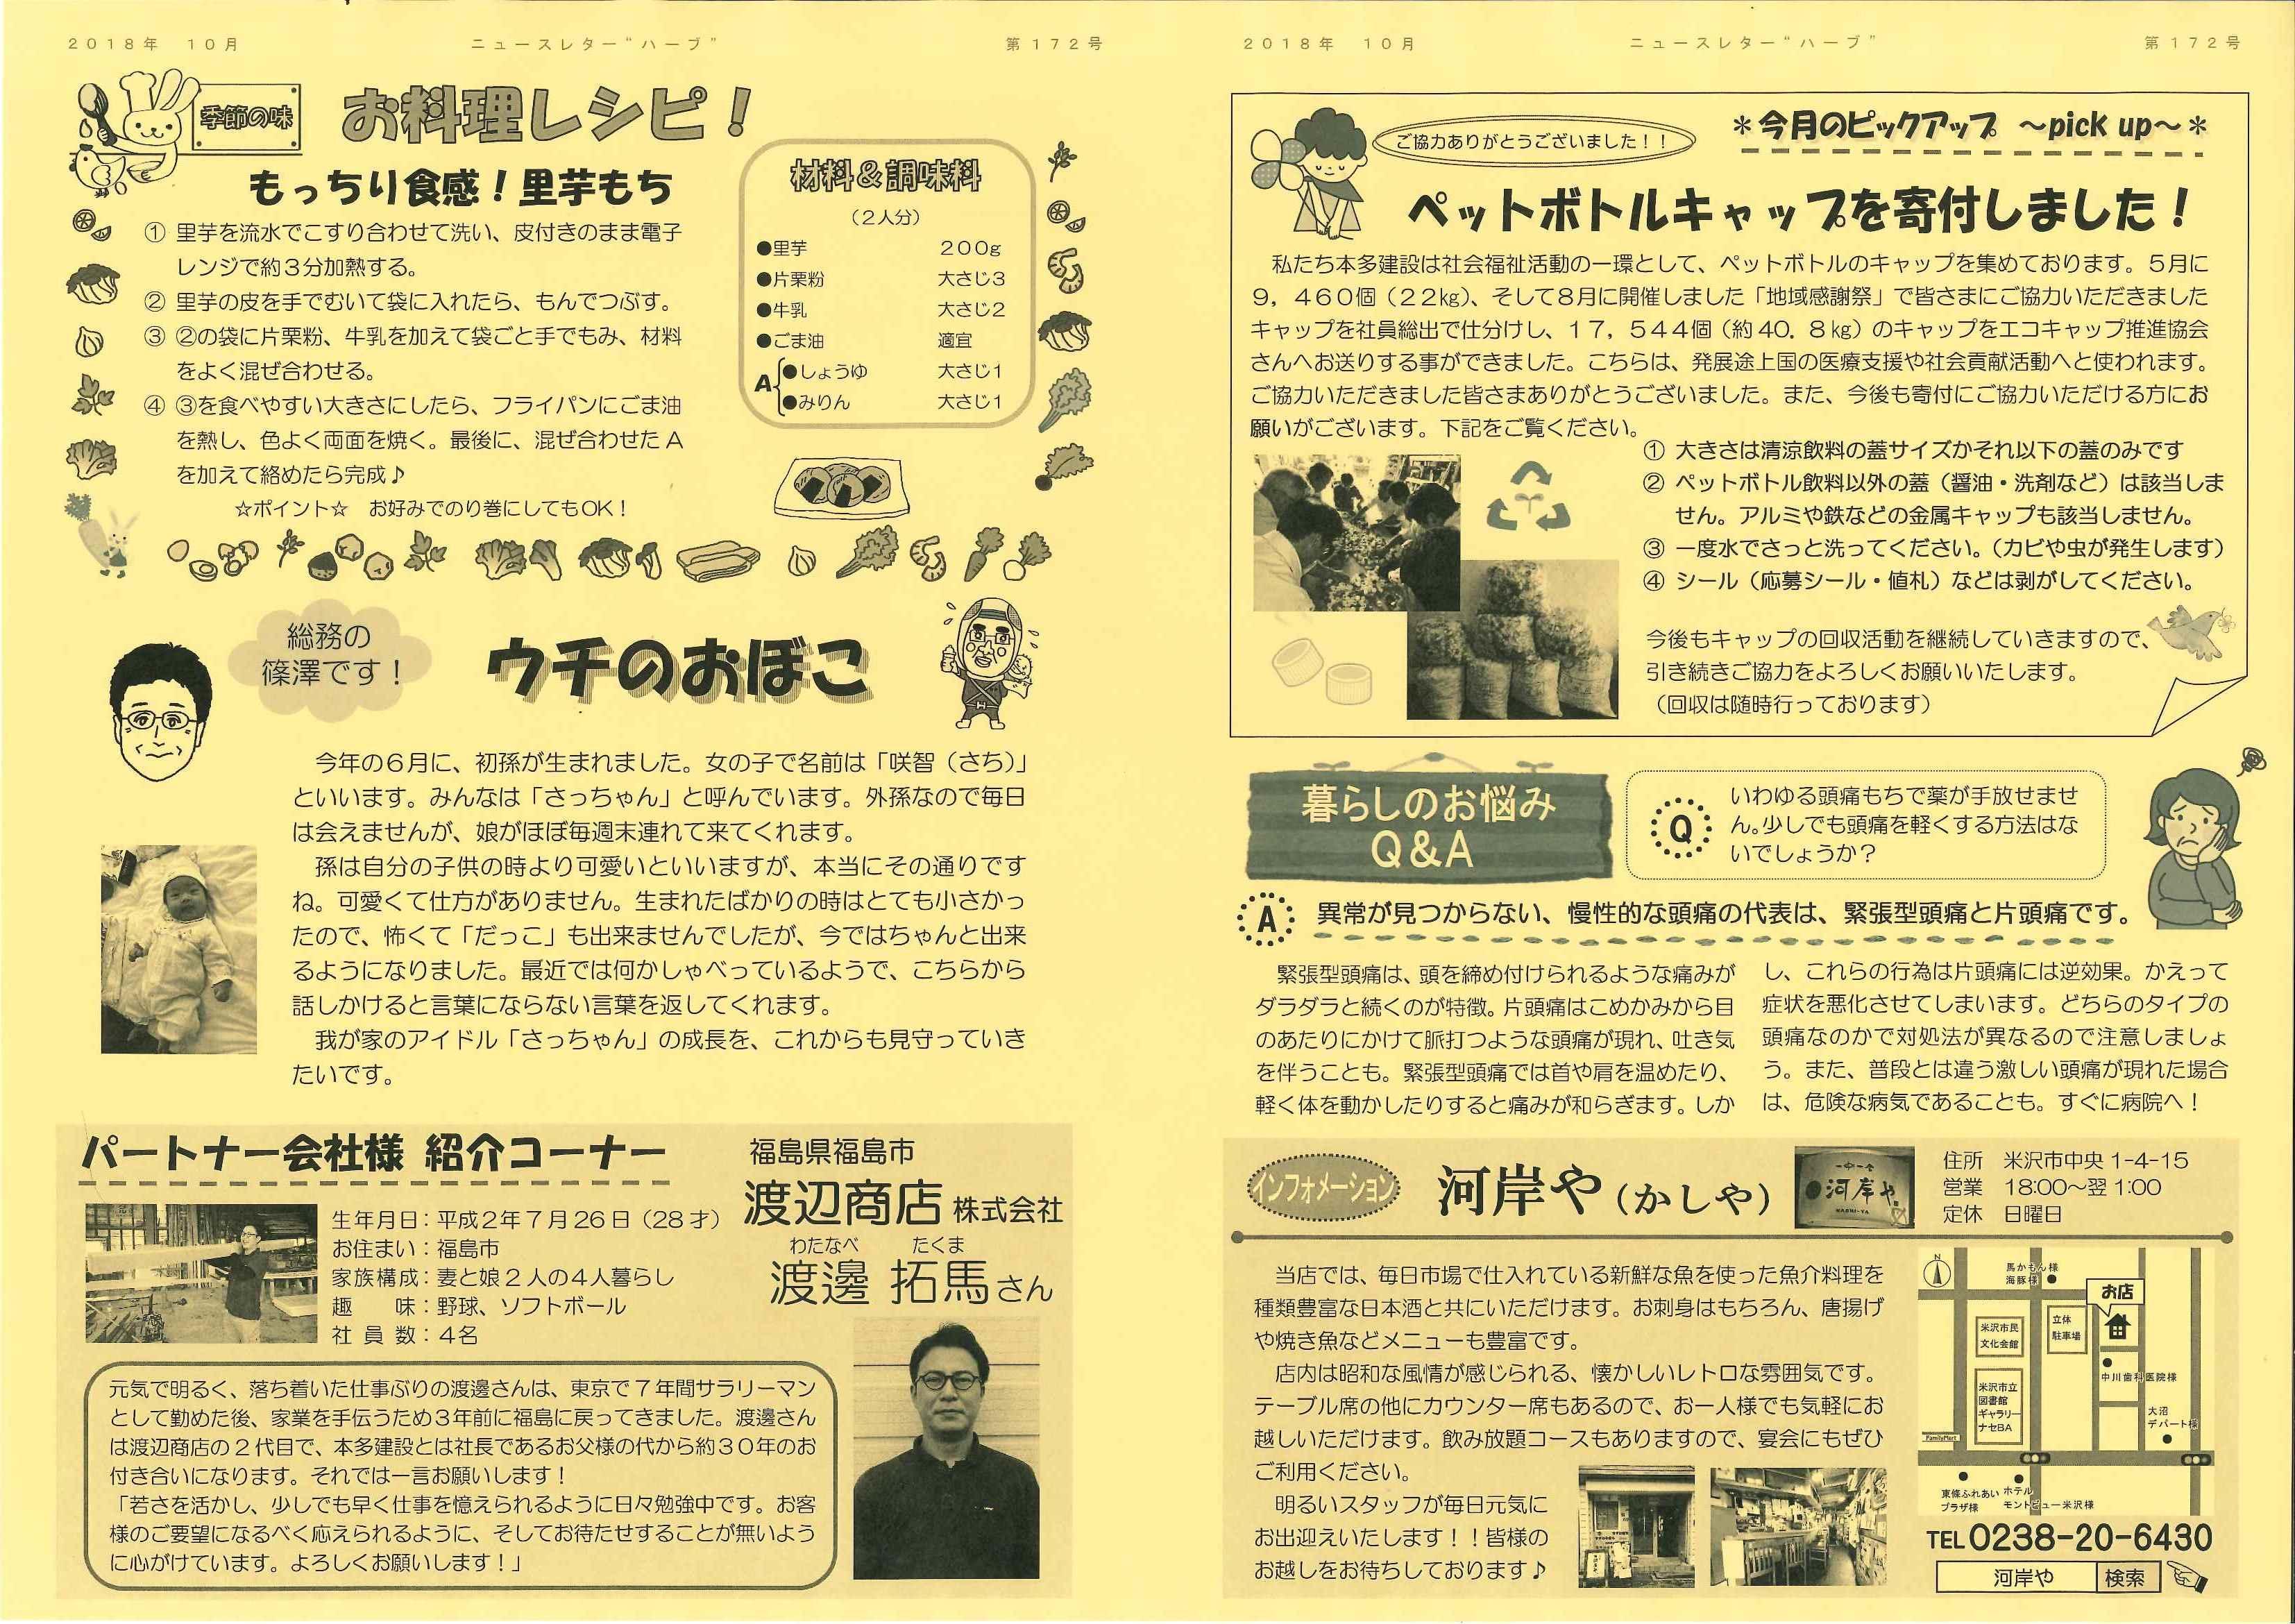 2018年　10月
ニュースレター“ハーブ”
第172号
季節の味
お料理レシピ！
もっちり食感！里芋もち
① 里芋を流水でこすり合わせて洗い、皮付きのまま電子
レンジで約３分加熱する。
② 里芋の皮を手でむいて袋に入れたら、もんでつぶす。
③ ②の袋に片栗粉、牛乳を加えて袋ごと手でもみ、材料
をよく混ぜ合わせる。
④ ③を食べやすい大きさにしたら、フライパンにごま油
を熱し、色よく両面を焼く。最後に、混ぜ合わせた A
を加えて絡めたら完成♪
☆ポイント☆　お好みでのり巻にしてもOK！
材料＆調味料
（２人分）
●里芋　200g
●片栗粉　大さじ3
●牛乳　大さじ2
●ごま油　適宜
A
●しょうゆ　大さじ1
●みりん　大さじ1
総務の
篠澤です！
ウチのおぼこ
今年の６月に、初孫が生まれました。女の子で名前は「咲智（さち）」
といいます。みんなは「さっちゃん」と呼んでいます。外孫なので毎日
は会えませんが、娘がほぼ毎週末連れて来てくれます。
孫は自分の子供の時より可愛いといいますが、本当にその通りです
ね。可愛くて仕方がありません。生まれたばかりの時はとても小さかっ
たので、怖くて「だっこ」も出来ませんでしたが、今ではちゃんと出来
るようになりました。最近では何かしゃべっているようで、こちらから
話しかけると言葉にならない言葉を返してくれます。
我が家のアイドル「さっちゃん」の成長を、これからも見守っていき
たいです。
パートナー会社様 紹介コーナー
福島県福島市
渡辺商店 株式会社
わたなべ　たくま
渡邊 拓馬さん
生年月日：平成２年７月26日（28才）
お住まい：福島市
家族構成：妻と娘２人の４人暮らし
趣　　味：野球、ソフトボール
社 員 数：４名
元気で明るく、落ち着いた仕事ぶりの渡邊さんは、東京で７年間サラリーマン
として勤めた後、家業を手伝うため３年前に福島に戻ってきました。渡邊さん
は渡辺商店の２代目で、本多建設とは社長であるお父様の代から約３０年のお
付き合いになります。それでは一言お願いします！
「若さを活かし、少しでも早く仕事を憶えられるように日々勉強中です。お客
様のご要望になるべく応えられるように、そしてお待たせすることが無いよう
に心がけています。よろしくお願いします！」
2018年　10月
ニュースレター“ハーブ”
第172号
ご協力ありがとうございました！！
＊今月のピックアップ　～pick up～＊
ペットボトルキャップを寄付しました！
私たち本多建設は社会福祉活動の一環として、ペットボトルのキャップを集めております。５月に
９，４６０個（２２kg）、そして８月に開催しました「地域感謝祭」で皆さまにご協力いただきました
キャップを社員総出で仕分けし、１７，５４４個（約40．8㎏）のキャップをエコキャップ推進協会
さんへお送りする事ができました。こちらは、発展途上国の医療支援や社会貢献活動へと使われます。
ご協力いただきました皆さまありがとうございました。また、今後も寄付にご協力いただける方にお
願いがございます。下記をご覧ください。
① 大きさは清涼飲料の蓋サイズかそれ以下の蓋のみです
② ペットボトル飲料以外の蓋（醤油・洗剤など）は該当しま
せん。アルミや鉄などの金属キャップも該当しません。
③ 一度水でさっと洗ってください。（カビや虫が発生します）
④ シール（応募シール・値札）などは剥がしてください。
今後もキャップの回収活動を継続していきますので、
引き続きご協力をよろしくお願いいたします。
（回収は随時行っております）
暮らしのお悩み
Q&A
Q
いわゆる頭痛もちで薬が手放せませ
ん。少しでも頭痛を軽くする方法はな
いでしょうか？
A
異常が見つからない、慢性的な頭痛の代表は、緊張型頭痛と片頭痛です。
緊張型頭痛は、頭を締め付けられるような痛みが
ダラダラと続くのが特徴。片頭痛はこめかみから目
のあたりにかけて脈打つような頭痛が現れ、吐き気
を伴うことも。緊張型頭痛では首や肩を温めたり、
軽く体を動かしたりすると痛みが和らぎます。しか
し、これらの行為は片頭痛には逆効果。かえって
症状を悪化させてしまいます。どちらのタイプの
頭痛なのかで対処法が異なるので注意しましょ
う。また、普段とは違う激しい頭痛が現れた場合
は、危険な病気であることも。すぐに病院へ！
インフォメーション
河岸や（かしや）
河岸や
住所　米沢市中央 1-4-15
営業　18:00～翌 1:00
定休　日曜日
当店では、毎日市場で仕入れている新鮮な魚を使った魚介料理を
種類豊富な日本酒と共にいただけます。お刺身はもちろん、唐揚げ
や焼き魚などメニューも豊富です。
店内は昭和な風情が感じられる、懐かしいレトロな雰囲気です。
テーブル席の他にカウンター席もあるので、お一人様でも気軽にお
越しいただけます。飲み放題コースもありますので、宴会にもぜひ
ご利用ください。
明るいスタッフが毎日元気に
お出迎えいたします！！皆様の
お越しをお待ちしております♪
N
馬かもん様
海豚様
お店
米沢市民
文化会館
立体
駐車場
中川歯科医院様
米沢市立
図書館
ギャラリー
ナセBA
大沼
デパート様
FamilyMart
東條ふれあい
プラザ様
ホテル
モントビュー米沢様
TEL 0238-20-6430
河岸や　検索